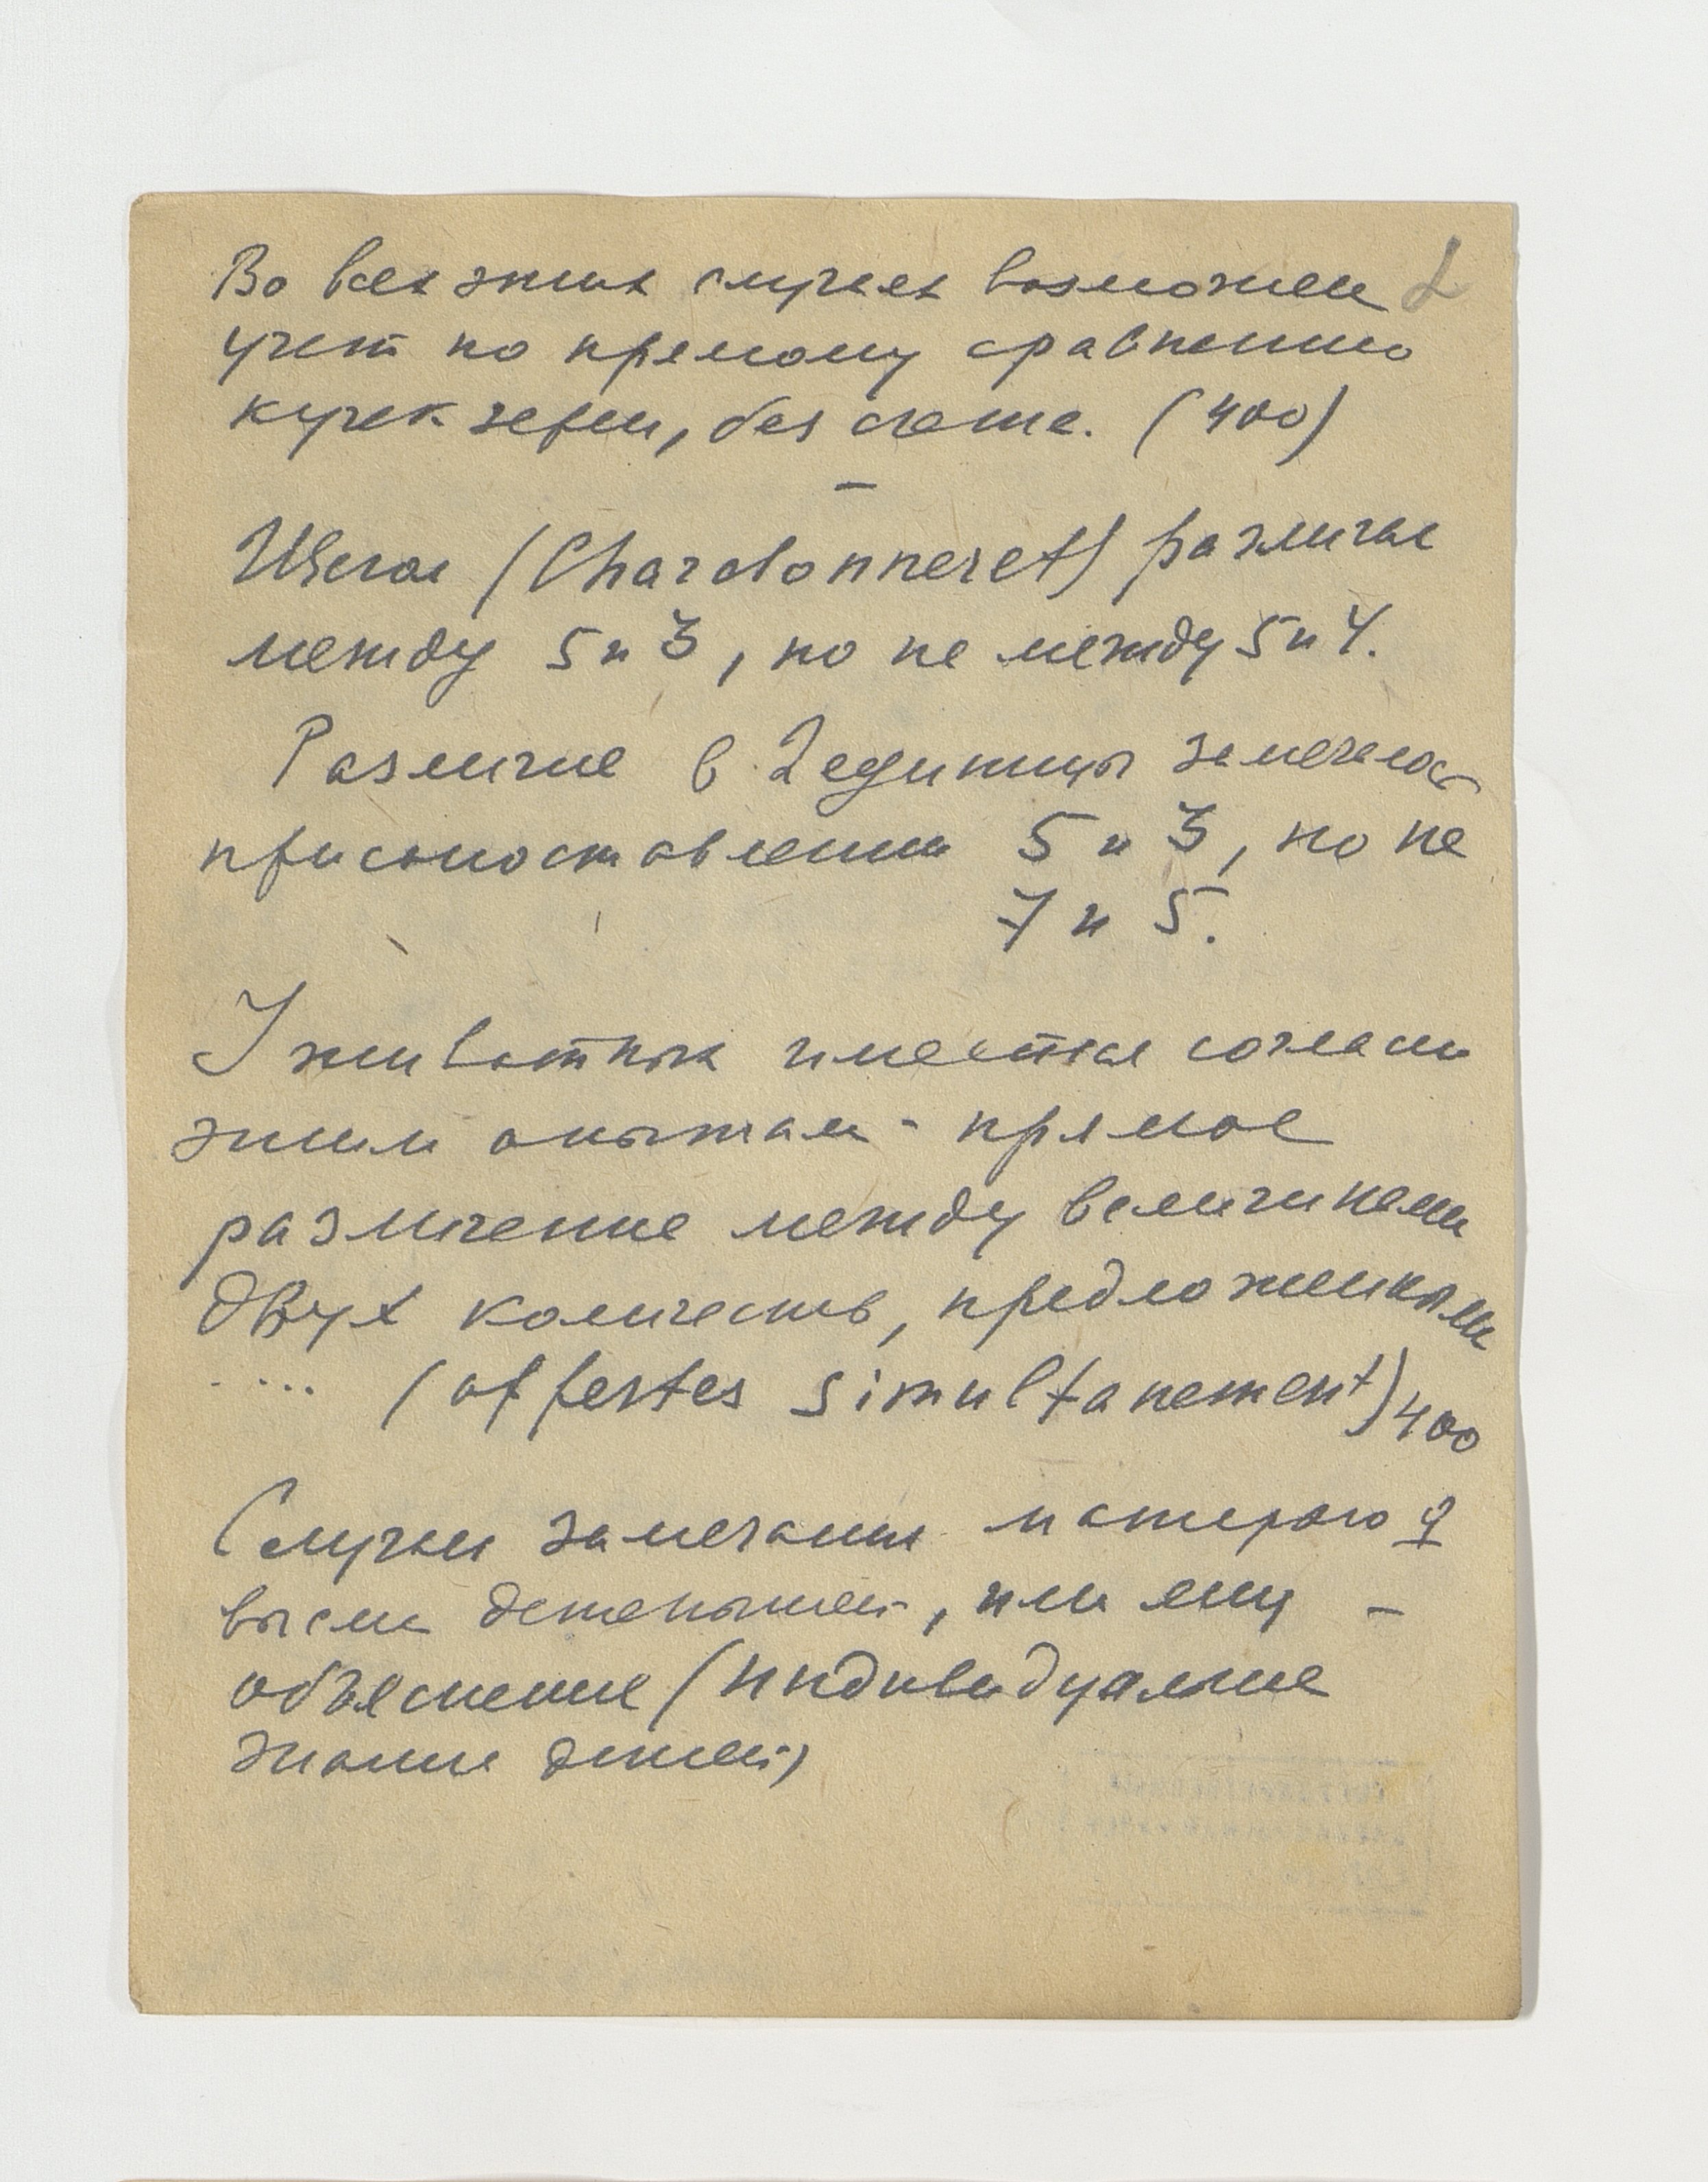 Во всех этих случаях возможен 2
учет по прямому сравнению
кучек зерен, без счета. (400)
—
Щегол (Chardonneret) различал
между 5 и 3, но не между 5 и 4.
Различие в 2 единицы замечалось
при сопоставлении 5 и 3, но не
7 и 5.
У животных имеется согласно
этим опытам - прямое
различение между величинами
двух количеств, предложенными
.... (offertes simultanement) 400
Случаи замечания матерью ♀
детенышей, или яиц -
объяснение (индивидуальное
знание детей)